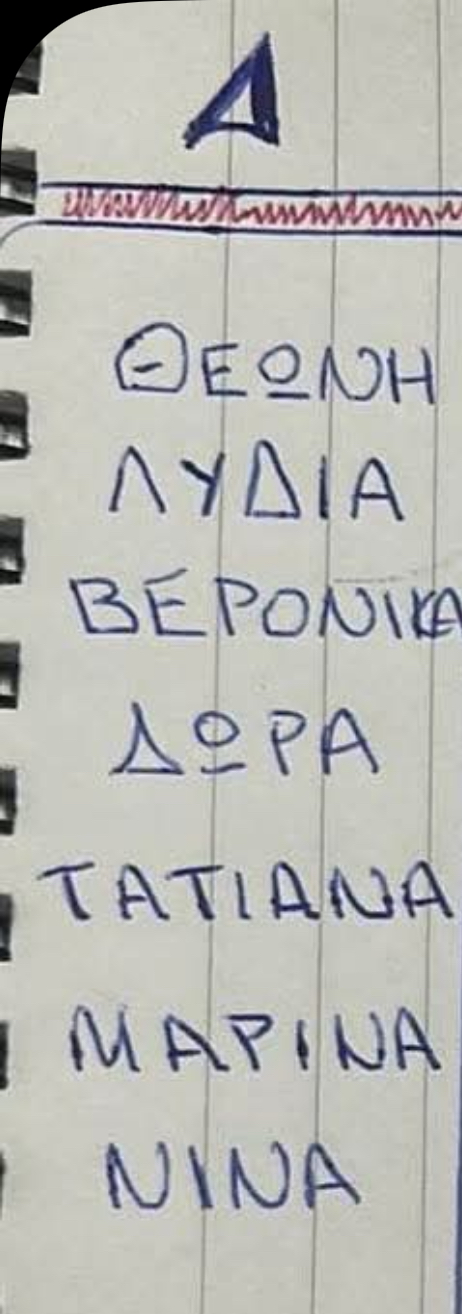 Δ
ΘΕΩΝΗ
ΛΥΔΙΑ
ΒΕΡΟΝΙΚΑ
ΔΩΡΑ
ΤΑΤΙΑΝΑ
ΜΑΡΙΝΑ
ΝΙΝΑ